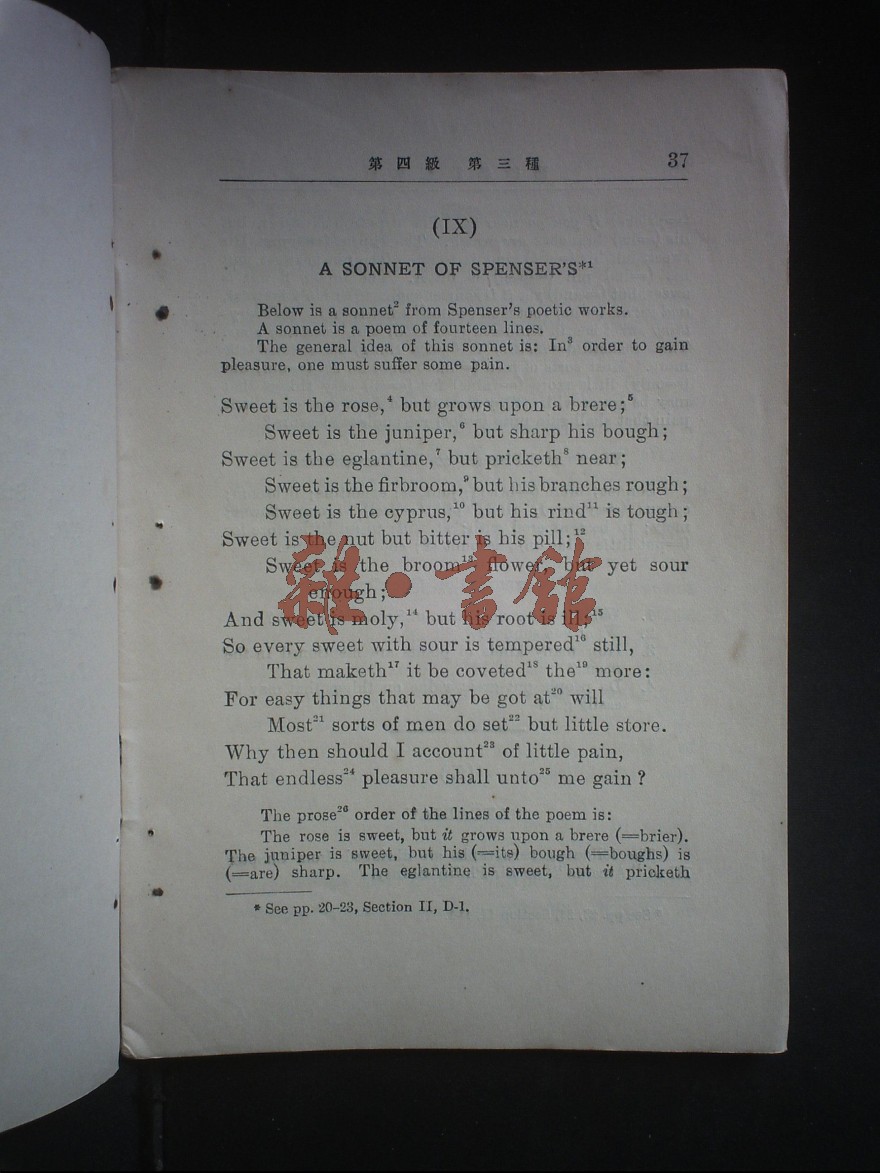 第四級 第三種 37
(IX)
A SONNET OF SPENSER'S*¹
Below is a sonnet² from Spenser's poetic works.
A sonnet is a poem of fourteen lines.
The general idea of this sonnet is: In³ order to gain
pleasure, one must suffer some pain.
Sweet is the rose,⁴ but grows upon a brere;⁵
Sweet is the juniper,⁶ but sharp his bough;
Sweet is the eglantine,⁷ but pricketh⁸ near;
Sweet is the firbroom,⁹ but his branches rough;
Sweet is the cyprus,¹⁰ but his rind¹¹ is tough;
Sweet is the nut but bitter is his pill;¹²
Sweet is the broom¹³ flower, but yet sour
enough;
And sweet is moly,¹⁴ but his root is ill;¹⁵
So every sweet with sour is tempered¹⁶ still,
That maketh¹⁷ it be coveted¹⁸ the¹⁹ more:
For easy things that may be got at²⁰ will
Most²¹ sorts of men do set²² but little store.
Why then should I account²³ of little pain,
That endless²⁴ pleasure shall unto²⁵ me gain?
The prose²⁶ order of the lines of the poem is:
The rose is sweet, but it grows upon a brere (=brier).
The juniper is sweet, but his (=its) bough (=boughs) is
(=are) sharp. The eglantine is sweet, but it pricketh
* See pp. 20–23, Section II, D-1.
雜·書館